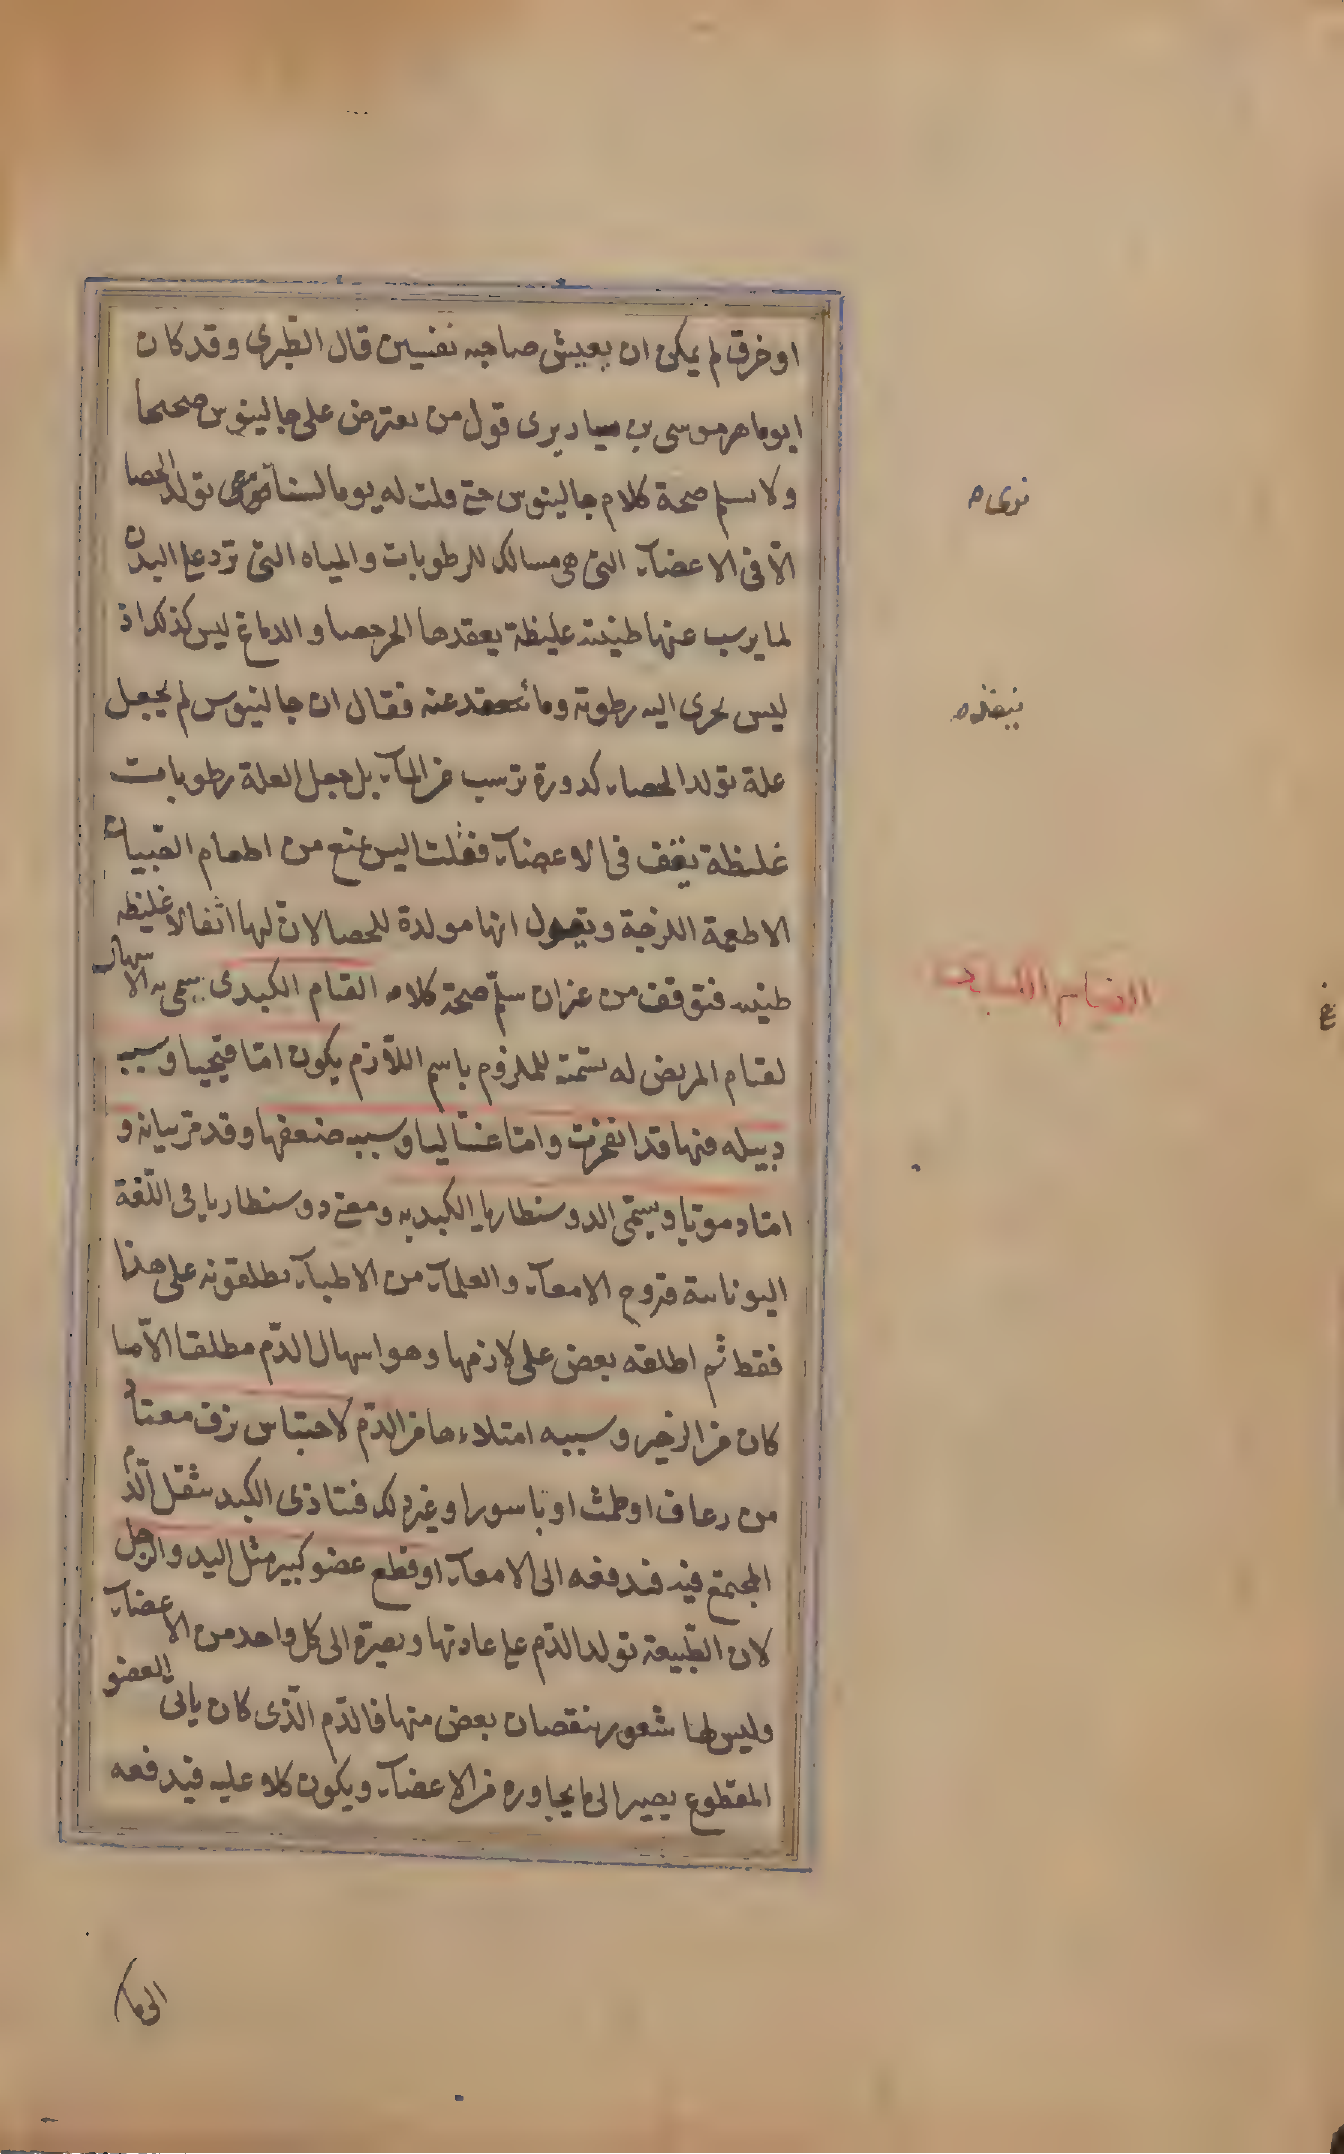 او خرق لم يمكن ان يعيش صاحبه نفسين قال الطبرى وقد كان
ابو ماهر موسى بن سيار يرى قول من يعترض على جالينوس صحيحا
ولا يسلم صحة كلام جالينوس حتى قلت له يوما لسنا نرى تولد الحصا
الّا فى الاعضآء التى هى مسالك للرطوبات والمياه التى ترد على البدن
لما يرسب عنها طينته غليظة يعقدها الحر حصا والدماغ ليس كذلك اذ
ليس يجرى اليه رطوبة وما ينعقد عنه فقال ان جالينوس لم يجعل
علة تولد الحصاء كدورة ترسب من المآء بل جعل العلة رطوبات
غليظة يقف فى الاعضآء فقلت اليس يمنع من اطعام الصبيان
الاطعمة اللزجة ويقول انها مولدة للحصا لان لها اثفالا غليظه
طينيه فتوقف من غير ان سلّم صحة كلامه القيام الكبدى يسمى به الاسهال
لقيام المريض له تسمية للملزوم باسم اللازم يكون امّا قيحيا وسببه
دبيله فيها قد انفجرت وامّا غسّاليا وسببه ضعفها وقد مرّ بيانه و
امّا دمويّا ويسمّى الدوسنطاريا الكبديه ومعنى دوسنطاريا فى اللّغة
اليونانية قروح الامعآء والعلمآء من الاطبآء يطلقونه على هذا
فقط ثم اطلقه بعض على لازمها وهو اسهال الدّم مطلقا الّا ما
كان من الزحير وسببه امتلاءها من الدّم لاحتباس نزف معتاد
من رعاف او طمث او باسور او غير ذلك فتتاذى الكبد بثقل الّدم
المجتمع فيه فتدفعه الى الامعآء او قطع عضو كبير مثل اليد والرجل
لان الطّبيعة تولد الدّم على عادتها ويصيره الى كل واحد من الاعضآء
وليس لها شعور بنقصان بعض منها فالدّم الّذى كان ياتى العضو
المقطوع يصير الى ما يجاوره من الاعضآء ويكون كلا عليه فيدفعه
القيام الكبدى
الى ما